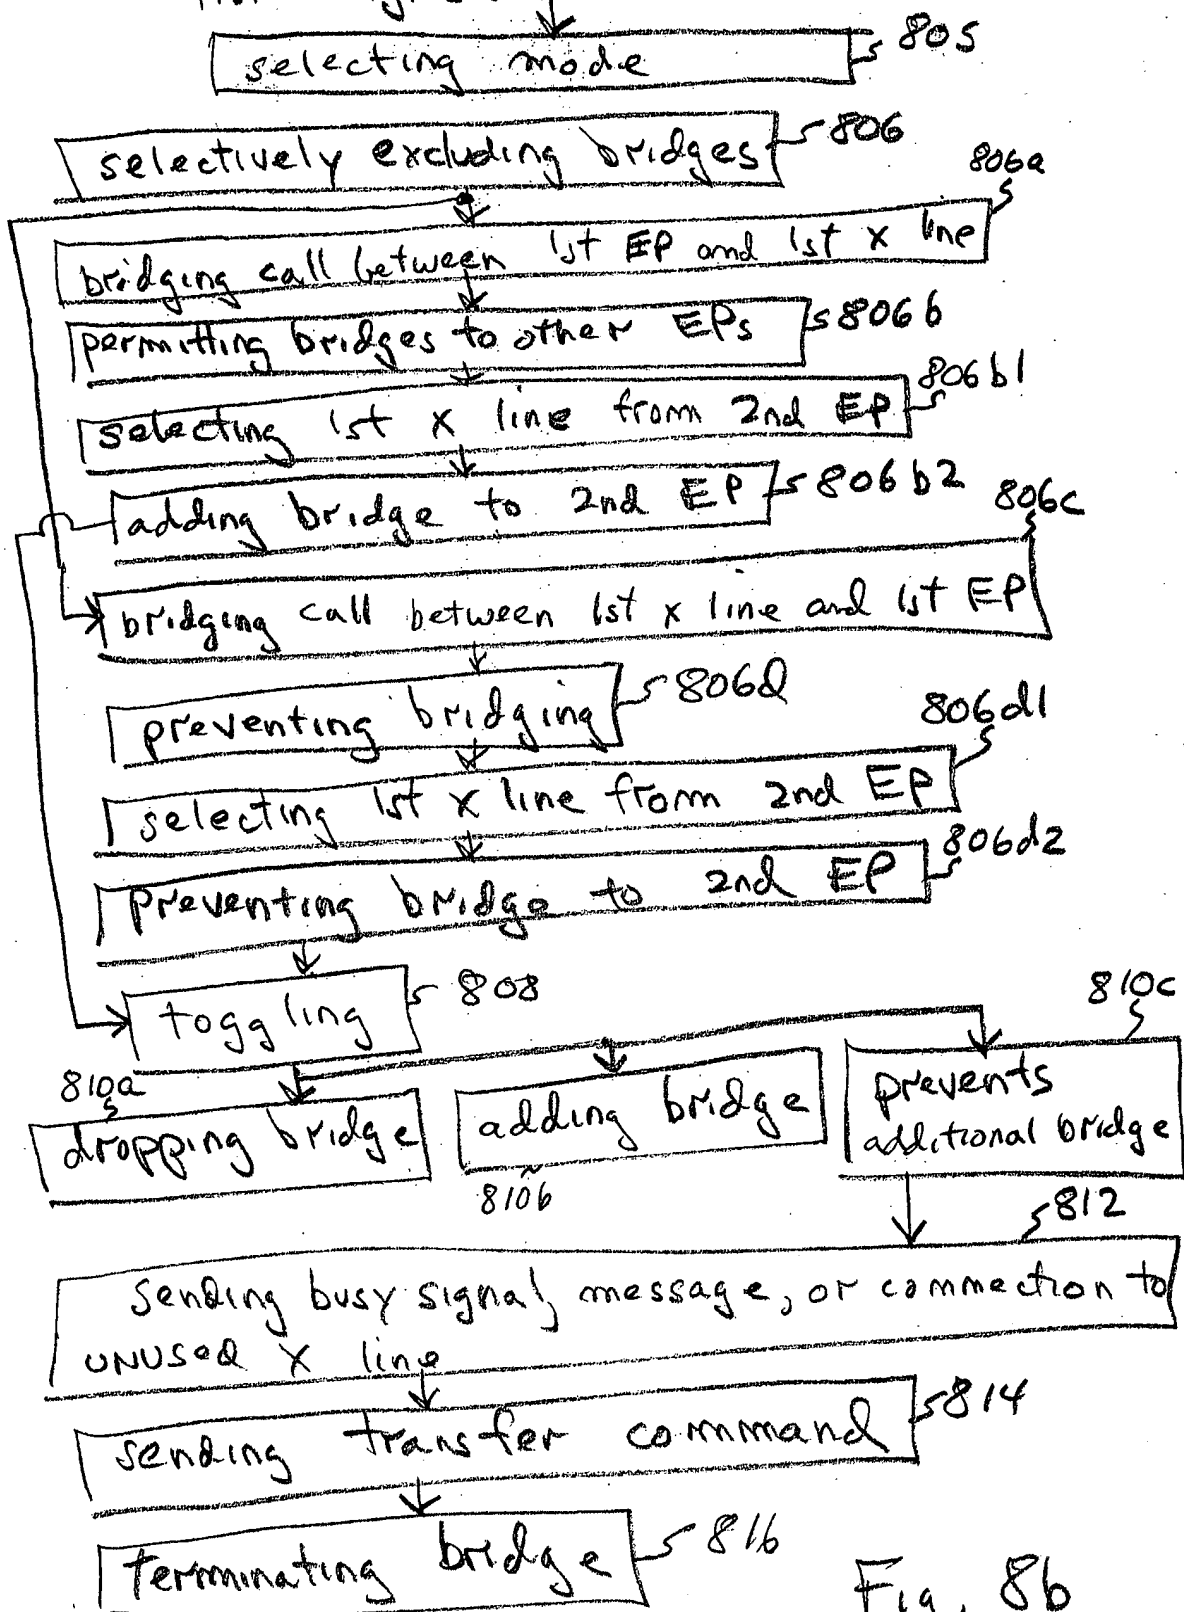 805
selecting mode
806
selectively excluding bridges
806a
bridging call between 1st EP and 1st x line
permitting bridges to other EPs
806b
806b1
selecting 1st x line from 2nd EP
adding bridge to 2nd EP
806b2
806c
bridging call between 1st x line and 1st EP
806d
preventing bridging
806d1
selecting 1st x line from 2nd EP
806d2
preventing bridge to 2nd EP
808
toggling
810c
810a
dropping bridge
adding bridge
prevents
additional bridge
810b
812
sending busy signal, message, or connection to
unused x line
814
sending transfer command
816
terminating bridge
Fig. 8b